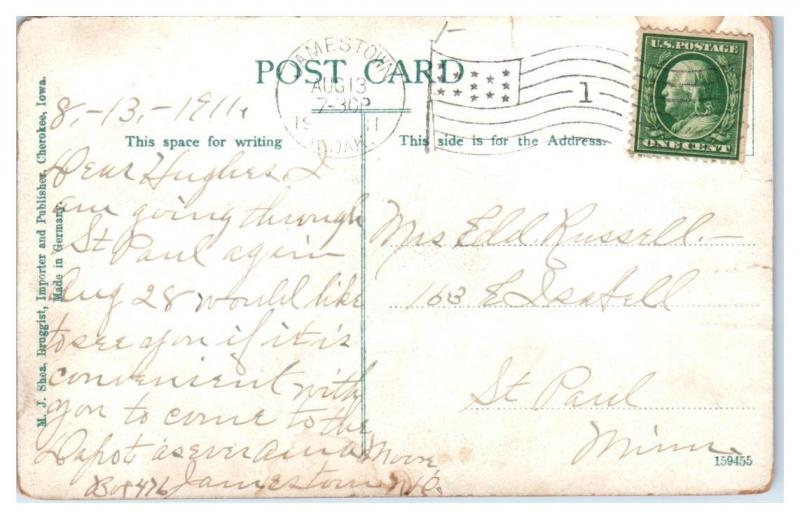 POST CARD
JAMESTOWN
AUG 13
7-30P
N.DAK.
1
U.S. POSTAGE
ONE CENT
This space for writing
This side is for the Address.
M. J. Shea, Druggist, Importer and Publisher, Cherokee, Iowa.
Made in Germany.
8,-13,-1911,
Dear Hughes I
am going through
St Paul again
Aug 28 would like
to see you if it is
convenient with
you to come to the
Dapot as ever
Moore
Box 476 Jamestown ND.
Mrs Edd Russell
163 E Isabell
St Paul
Minn.
159455